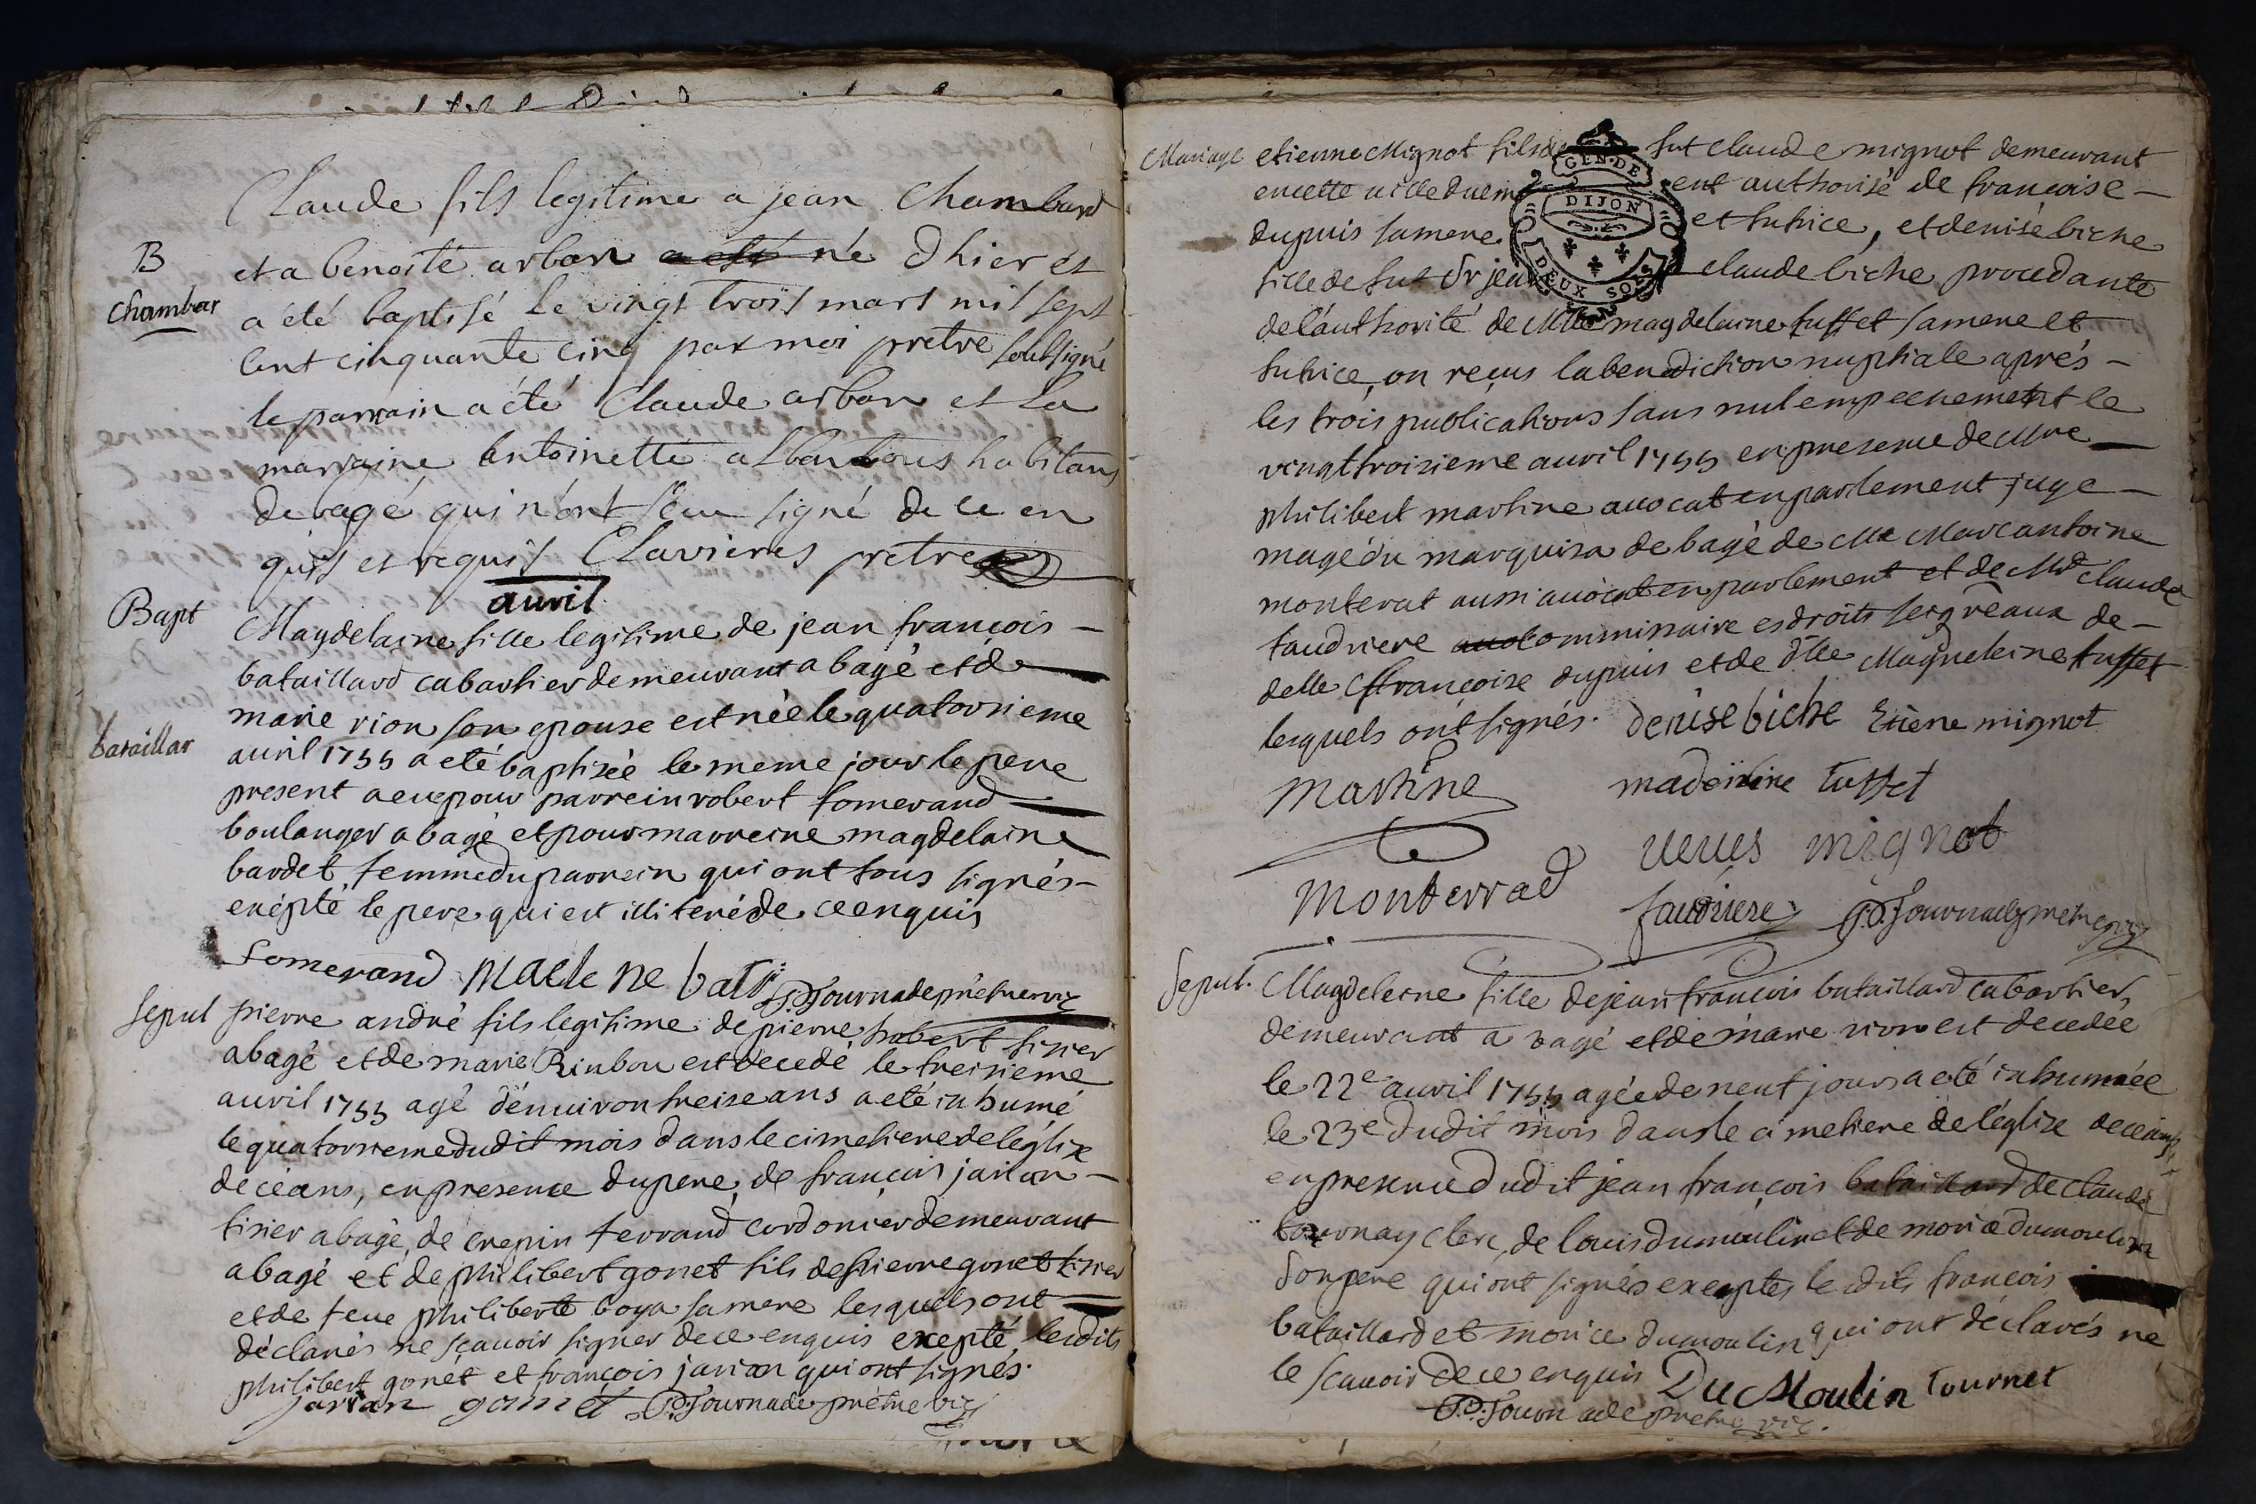 Claude fils legitime a jean Chambard
B
Chambar
et a benoite arban a esté né d'hier et
a été baptisé le vingt trois mars mil sept
cent cinquante cinq par moi prêtre soussigné
le parrain a été Claude arban et la
marraine antoinette alban tous habitans
de bagé qui n'ont sceu signé de ce en
quis et requis Clavieres prêtre
auril
Bapt
bataillar
Magdelaine fille legitime de jean françois
bataillard cabartier demeurant a bagé et de
marie rion son epouse est née le quatorsieme
auril 1755 a eté baptisée le meme jour le pere
present a eu pour parrein robert fomerand
boulanger a bagé et pour marreine magdelaine
bardet femme du parrein qui ont tous signés
exépté le pere qui est illiteré de ce enquis
fomerand P.D. Tournade prêtre vic
sepul
pierre andré fils legitime de pierre hubert tisier
a bagé et de marie Rinbou est décedé le treisieme
auril 1755 agé d'enuiron treise ans a eté inhumé
le quatorsieme dudit mois dans le cimetiere de l'église
de céans, en presence du pere, de françois jarian
tisier a bagé, de crepin ferrand cordonier demeurant
a bagé et de philibert gonet fils de pierre gonet tisier
et de feue philiberte boya sa mere lesquels ont
déclarés ne sçauoir signer de ce enquis exepté lesdits
philibert gonét et françois jarian qui ont signés.
jarian gonnet P.D. Tournade prêtre vic
Mariage
etienne Mignot fils de fut claude mignot demeurant
en cette uille duem ent authorisé de françoise
dupuis sa mere et tutrice, et denise biche
fille de fut Sr jean claude biche procedante
de l'authorité de Mlle magdelaine tuffet sa mere et
tutrice, on reçus la benediction nuptiale aprés
les trois publications sans nul empechement le
vingt troisieme auril 1755 en presence de Mre
philibert martine auocat en parlement juge
mage du marquisa de bagé de Me Marc antoine
monterat aussi auocat en parlement et de Mre claude
faudriere commissaire es droits seigreaux de
delle françoise dupuis et de dlle Magdeleine tuffet
lesquels ont signés. denise biche Etiene mignot
Martine madeileine tuffet
ueues mignot
Monterrad faudriere P.D. Tournade prêtre vic
GEN. DE
DIJON
DEUX SOLS
sepul.
Magdeleine fille de jean françois bataillard cabartier,
demeurant a bagé et de marie rion est decedée
le 22e auril 1755 agée de neuf jours a eté inhumée
le 23e dudit mois dans le cimetiere de l'église de céans
en presence dudit jean françois bataillard de claude
tournay clerc, de louis dumoulin et de morice dumoulin
son pere qui ont signés exeptés lesdits françois
bataillard et morice dumoulin qui ont déclarés ne
le sçauoir de ce enquis Du Moulin Tournet
P.D. Tournade prêtre vic.